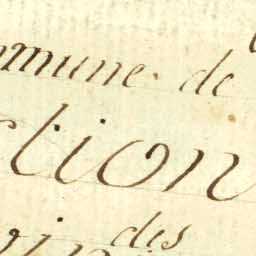 mmune de
tion
des